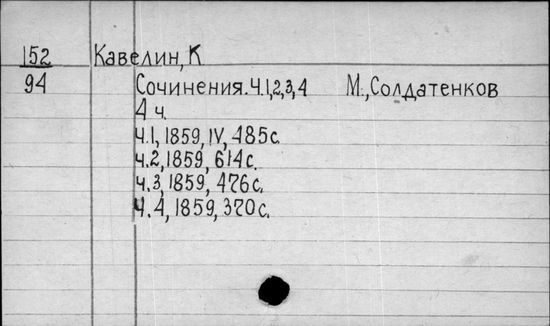 152 Кавелин, К
94 Сочинения. Ч.1,2,3,4 М., Солдатенков
4 ч.
Ч.1, 1859, IV, 485с.
ч.2, 1859, 614с.
ч.3, 1859, 476с.
Ч.4, 1859, 370с.